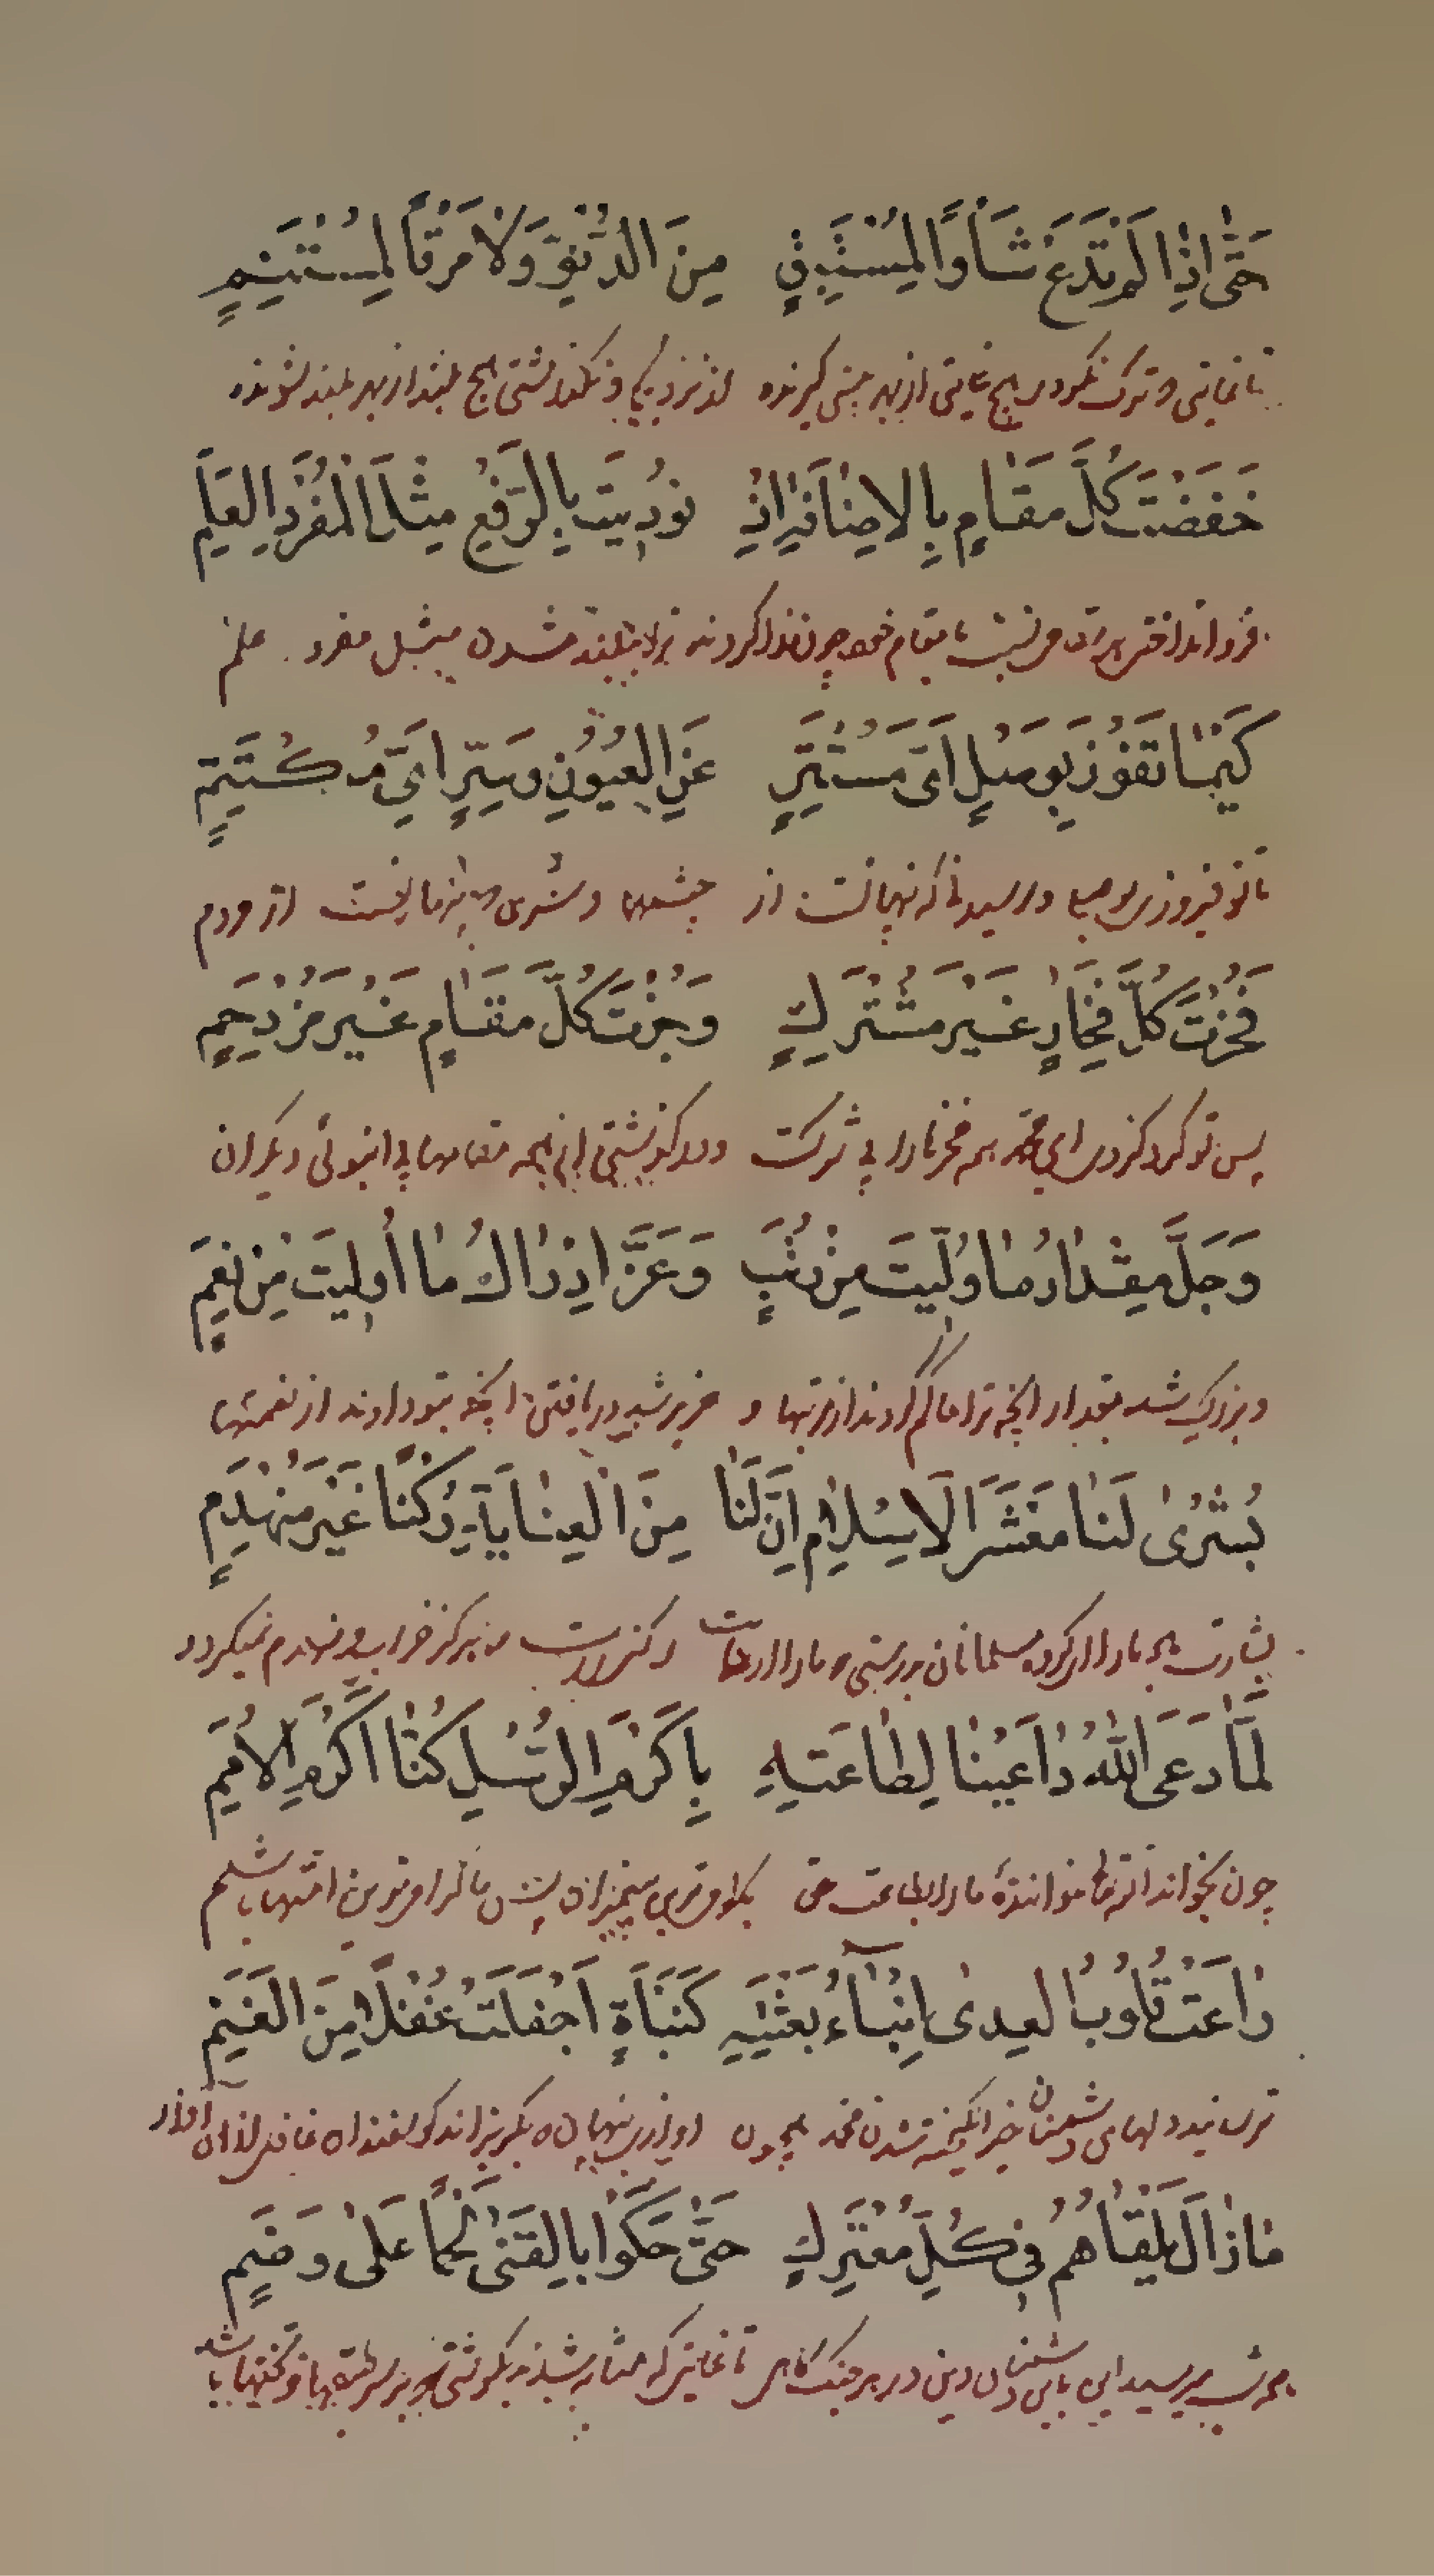 حَتّٰى اِذٰا لَمْ تَدَعْ شَأْوًا لِمُسْتَبِقٍ مِنَ الدُّنُوِّ وَلَا مَرْقًا لِمُسْتَنِمٍ
تا غایتی که ترک نکردی هیچ غایتی از بهر پیشی گیرنده از نزدیکی و نگذاشتی هیچ بلند از بهر بلند شونده
خَفَضْتَ كُلَّ مَقَامٍ بِالاِضَافَةِ اِذْ نُودِيتَ بِالرَّفْعِ مِثْلَ الْمُفْرَدِ العَلَمِ
فرو انداختی هر مقامی نسبت با مقام خود چون ندا کردند ترا ببلند شدن مثل مفرد علم
كَيْمَا تَفُوزَ بِوَصْلٍ اَىِّ مُسْتَتِرٍ عَنِ العُيُونِ وَسِرٍّ اَىِّ مُكْتَتَمِ
تا تو فیروزی بوصل و رسیدنی که نهانست از چشمها و سری که پنهانیست از مردم
فَحُزْتَ كُلَّ فَخَارٍ غَيْرَ مُشْتَرَكٍ وَجُزْتَ كُلَّ مَقَامٍ غَيْرَ مُزْدَحَمٍ
پس تو گرد کردی ای محمد همه فخرها را بی شرکت و در گذشتی از همه مقامها بی انبوئی دیگران
وَجَلَّ مِقْدَارُ مَا وُلِّيتَ مِنْ رُتَبٍ وَعَزَّ اِدْرَاكُ مَا اُولِيتَ مِنْ نِعَمٍ
و بزرگ شد مقدار آنچه ترا حاکم کردند از رتبها و عزیز شد دریافتن آنچه بتو دادند از نعمتها
بُشْرٰى لَنَا مَعْشَرَ الاِسْلَامِ اِنَّ لَنَا مِنَ الْعِنَايَةِ رُكْنًا غَيْرَ مُنْهَدِمٍ
بشارت ما را ای گروه مسلمانان بدرستی ما را از عنایت رکنی است که هرگز خراب و منهدم نمیگردد
لَمَّا دَعَى اللهُ دَاعِينَا لِطَاعَتِهِ بِاَكْرَمِ الرُّسُلِ كُنَّا اَكْرَمَ الاُمَمِ
چون بخواند الله تعالی خوانندۀ ما را بطاعت حق بگرامی‌ترین پیغمبران پس ما گرامی‌ترین امتها باشیم
رَاعَتْ قُلُوبَ العِدٰى اَنْبَآءُ بَعْثَتِهِ كَنَبْأَةٍ اَجْفَلَتْ غُفْلًا مِنَ الغَنَمِ
ترسانید دلهای دشمنان خبر انگیخته شدن محمد همچون آوازی پنهان که بگریزاند گوسفندان غافل از آن آواز
مَا زَالَ يَلْقَاهُمُ فِى كُلِّ مُعْتَرَكٍ حَتّٰى حَكَوْا بِالقَنَى لَحْمًا عَلٰى وَضَمٍ
همیشه میرسید این با دشمنان دین در هر جنگ گاهی تا غایتی که مشابه شدند بگوشتی که بر سر تخته‌ها باشد